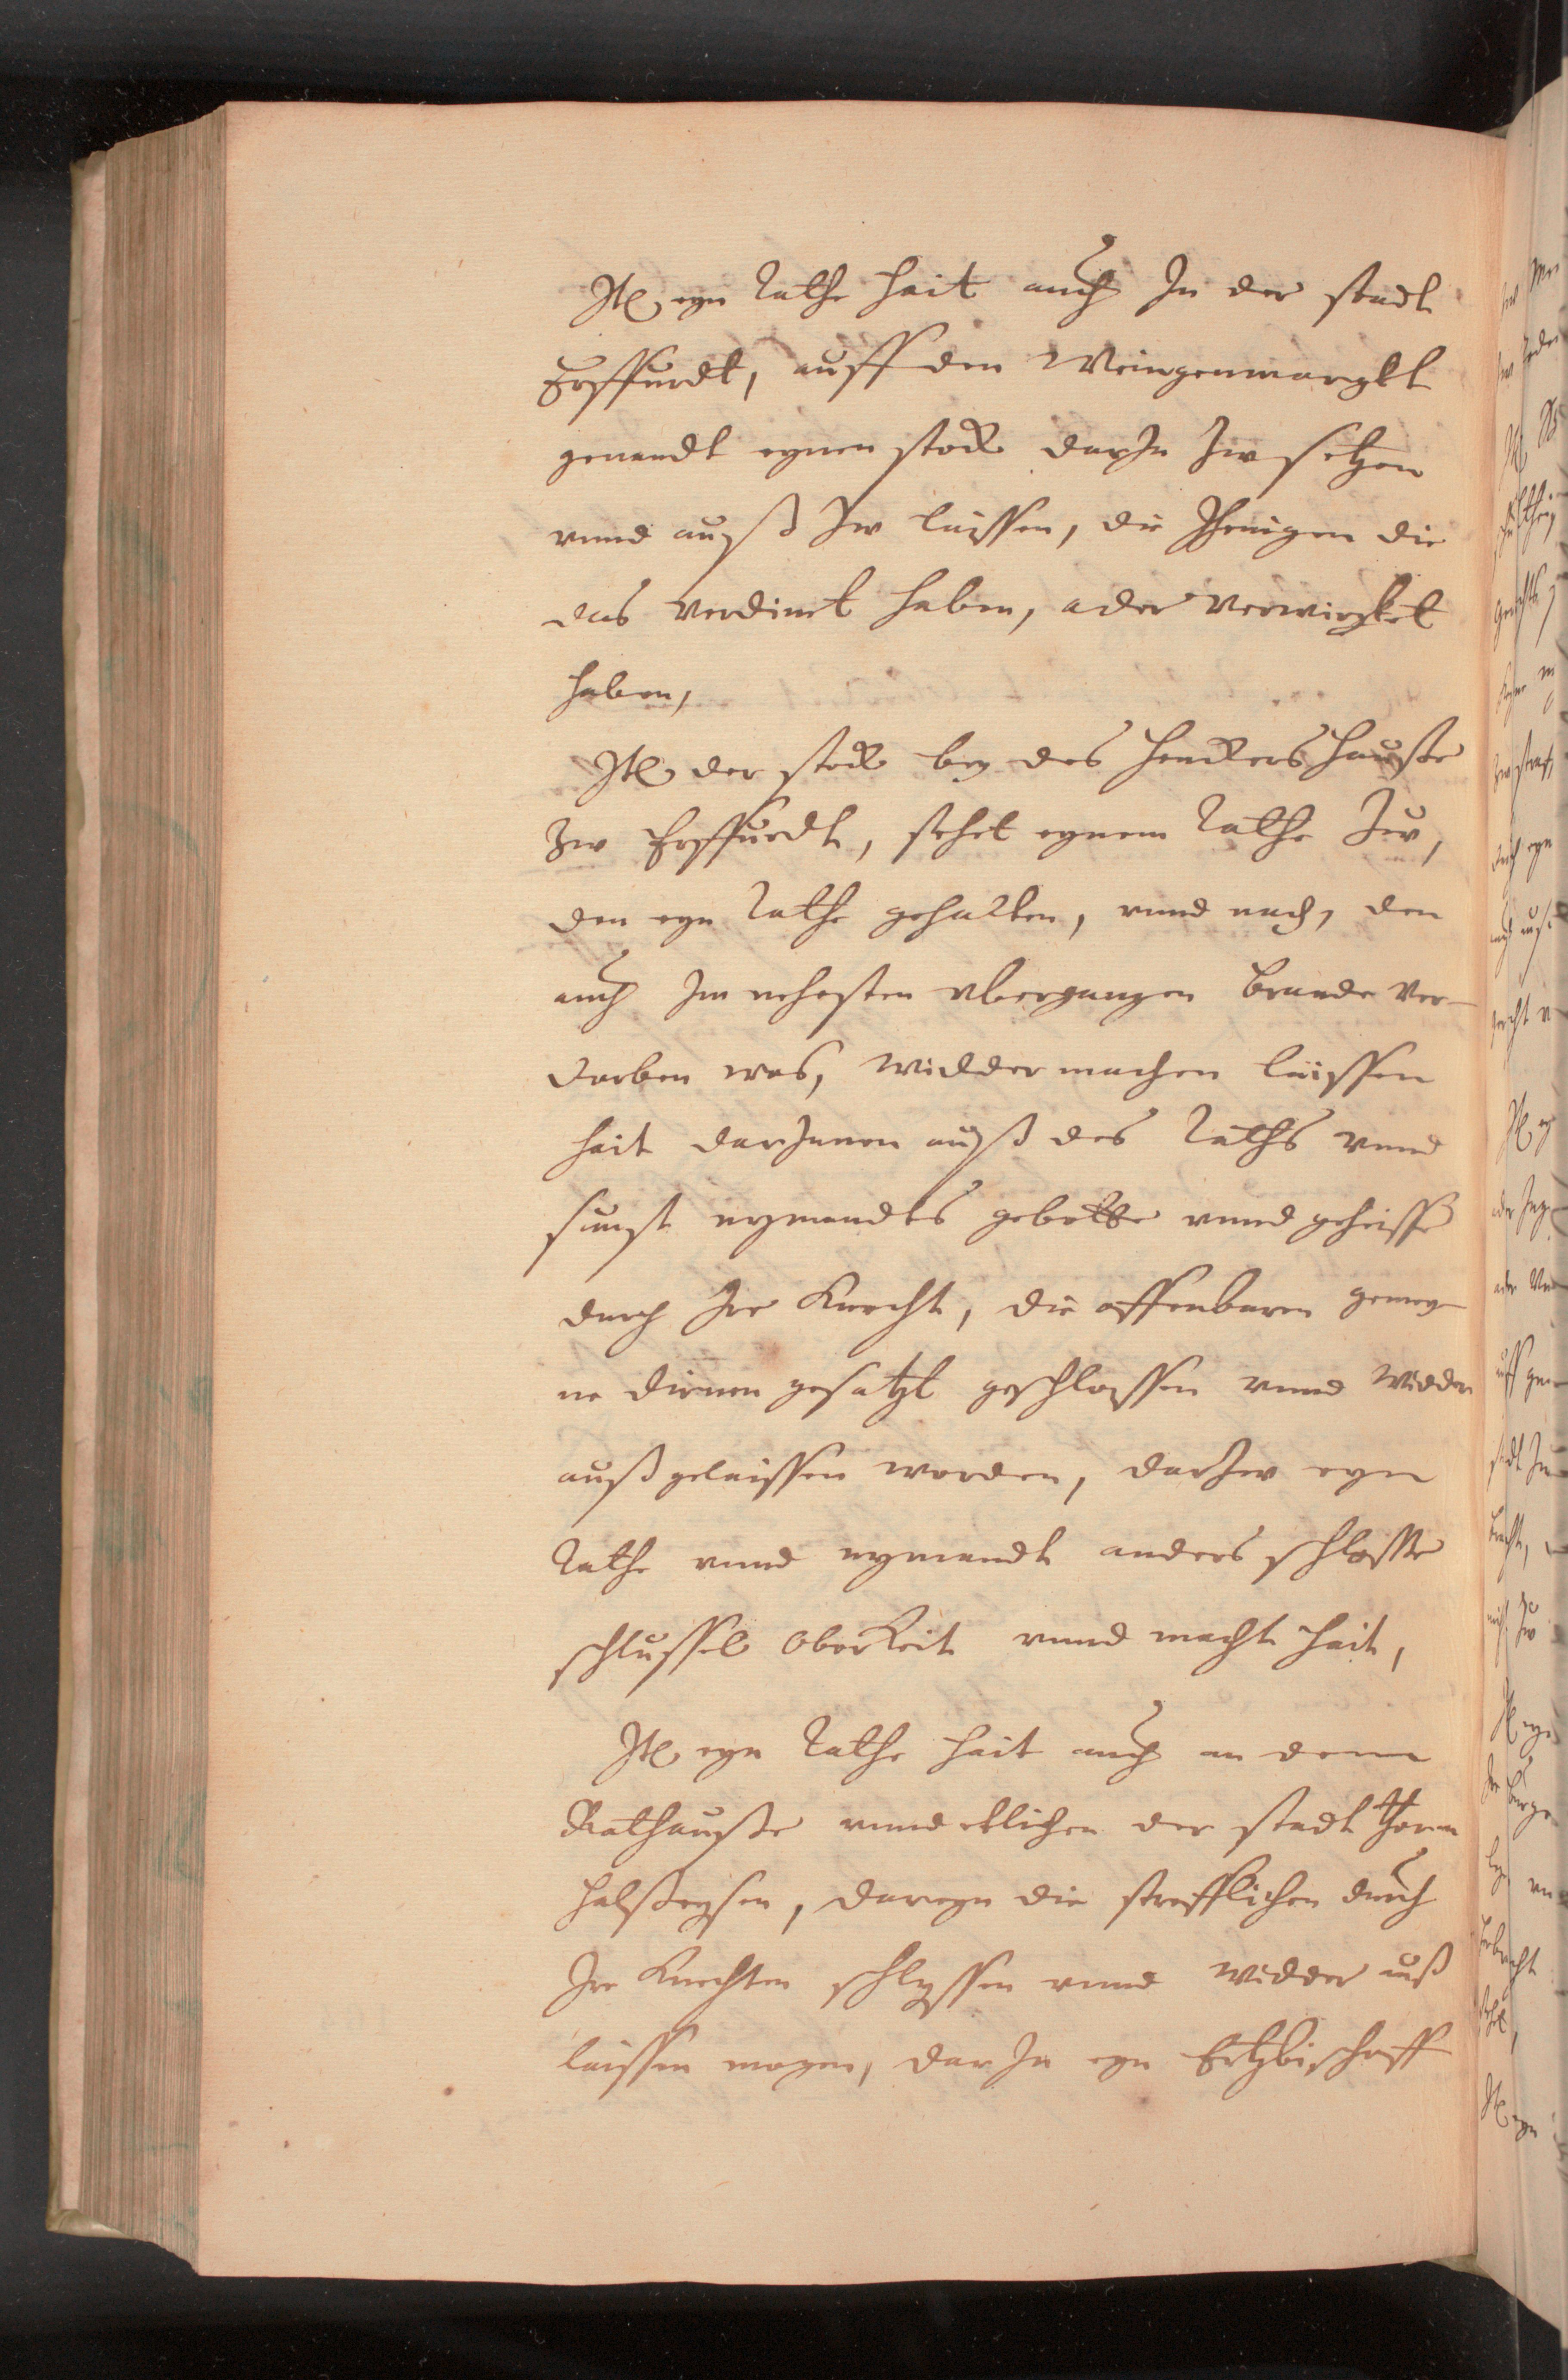 Itē eyn Rathe hait auch In der stadt
Erffurdt, auff den Weingenmargkt
genandt eynen stock darIn Zw setzen
vnnd auß Zw laissen, die Jhenigen die
das verdinet haben, ader verwirgket
haben,
Itē der stock bey des Henckers hauße
Zw Erffurdt, stehet eynem Rathe Zw,
den eyn Rathe gehalten, vnnd nach, den
auch Im nehesten vberganngen Brande ver-
dorben was, widder machen laissen
hait darJnnen auß des Raths vnnd
sunst nymandts gebotte vnnd geheisse
durch Ire Knecht, die offenbaren gemey-
ne dirnen gesatzt geschlossen vnnd widder
außgelaissen worden, darZw eyn
Rathe vnnd nymandt anders schlosse
schlussel OberKeit vnnd macht hait,
Itē eyn Rathe hait auch an denn
Rathauße vnnd etlichen der stadt thorn
halßeysen, dareyn die strefflichen durch
Ire Knechten schlyssen vnnd widder auß
laissen mogen, dar In eyn Ertzbischoff